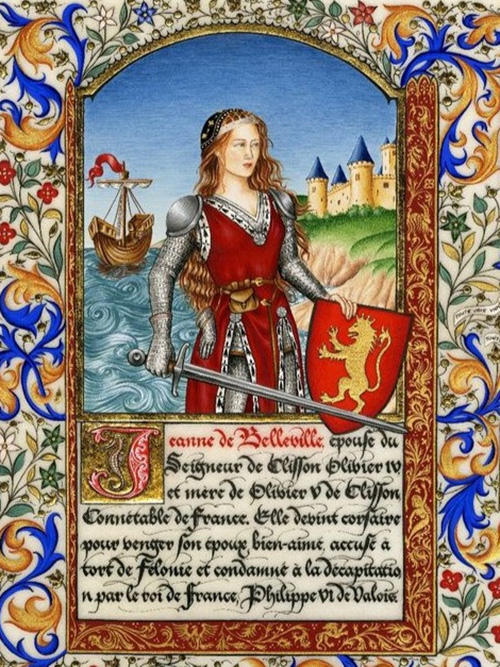 Jeanne de Belleville, épouse du
Seigneur de Clisson Olivier IV
et mère de Olivier V de Clisson,
Connétable de France. Elle devint corsaire
pour venger son époux bien-aimé, accusé à
tort de Félonie et condamné à la décapitatio
n par le roi de France, Philippe VI de Valois.